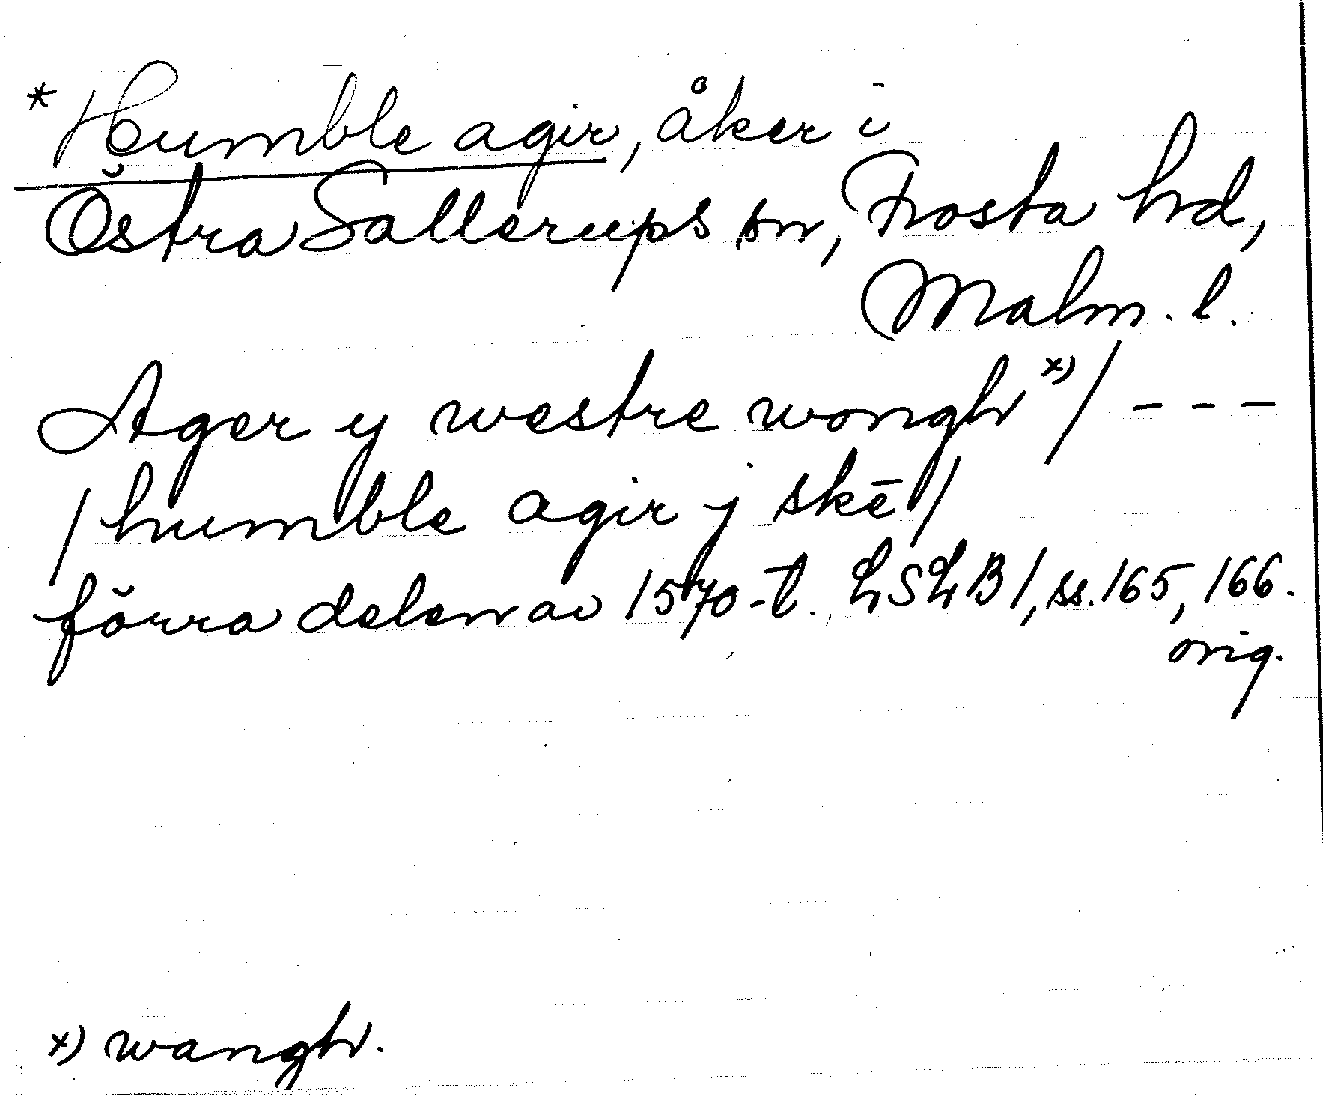 * Humble agir, åker i
Östra Sallerups sn, Frosta hd,
Malm. l.
Ager y westre wongh x) / - - -
/ humble agir j skē /
förra delen av 1570-t. LSLB 1, ss. 165, 166.
orig.
x) wangh.